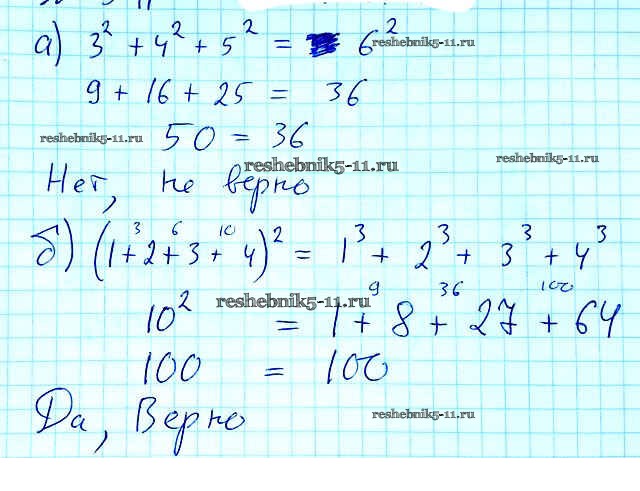 а) 3² + 4² + 5² = 6² reshebnik5-11.ru
9 + 16 + 25 = 36
reshebnik5-11.ru 50 = 36
reshebnik5-11.ru reshebnik5-11.ru
Нет, не верно
3 6 10
б) (1+2+3+4)² = 1³ + 2³ + 3³ + 4³
9 36 100
reshebnik5-11.ru
10² = 1 + 8 + 27 + 64
100 = 100
Да, Верно reshebnik5-11.ru